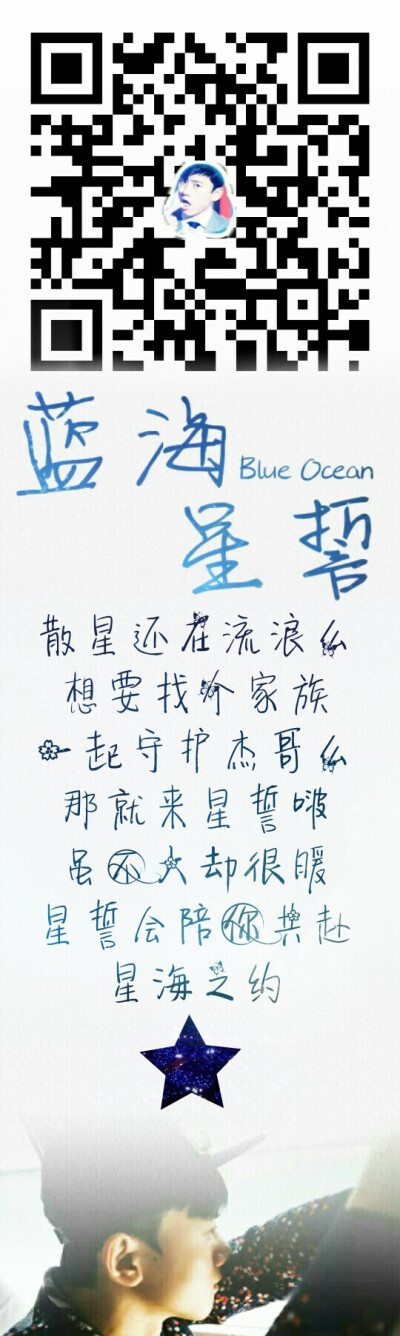 蓝海 Blue Ocean
星誓
散星还在流浪么
想要找个家族
一起守护杰哥么
那就来星誓啵
虽不大却很暖
星誓会陪你共赴
星海之约